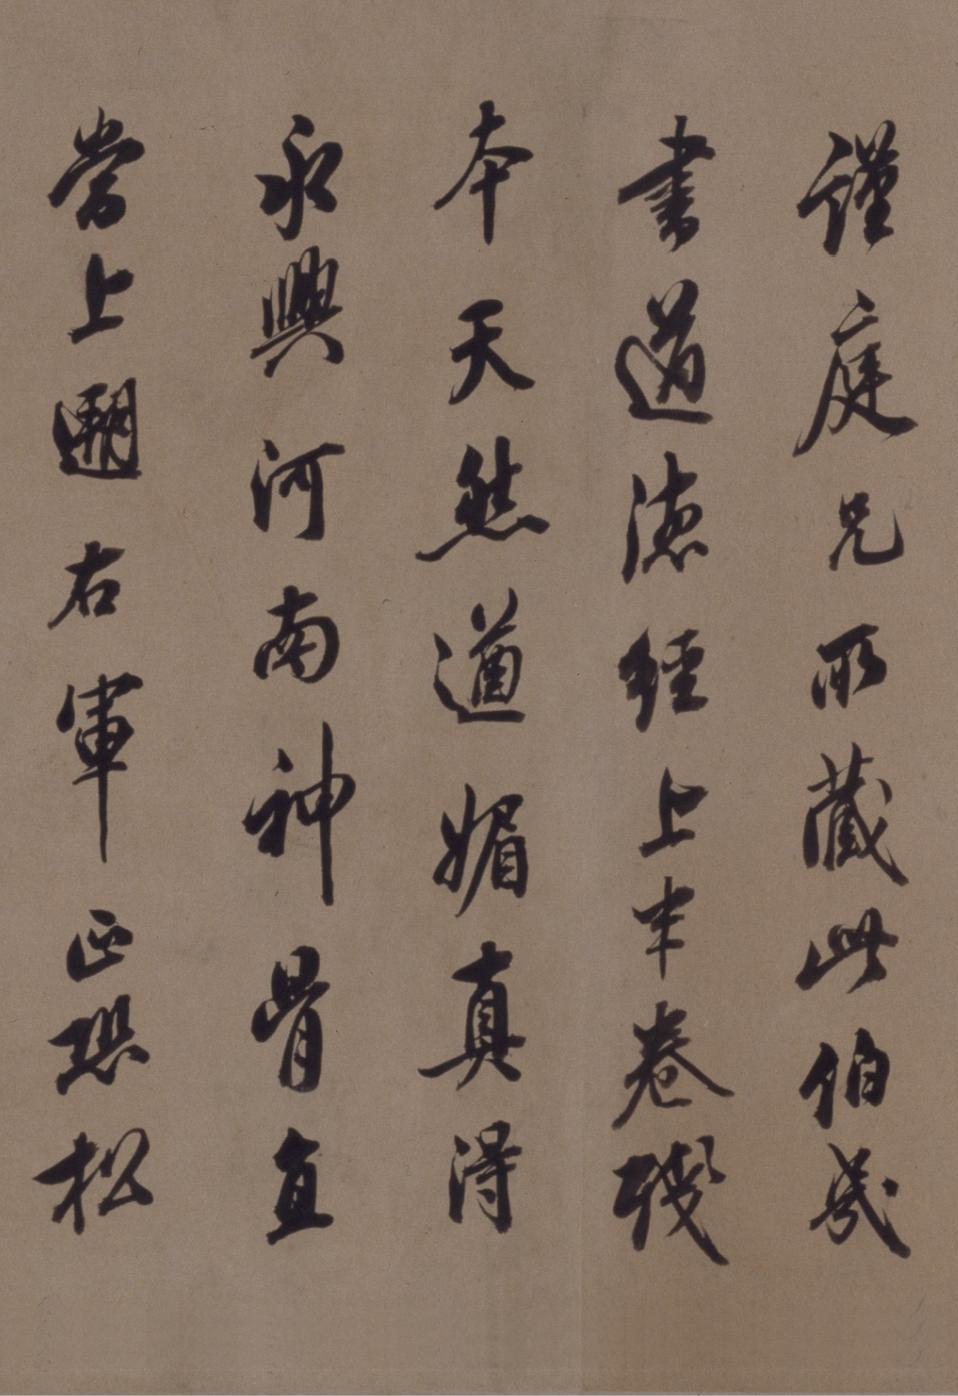 謹庭兄所藏此伯幾
書道德經上半卷殘
本天然遒媚真得
永興河南神骨直
當上邇右軍正恐松